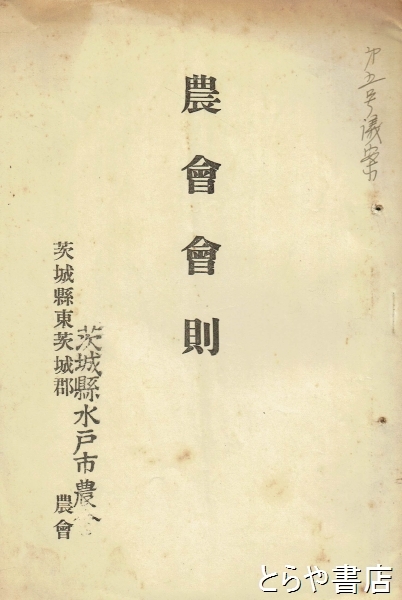 才五号議案
農會會則
茨城縣水戸市農會
茨城縣東茨城郡 農會
とらや書店